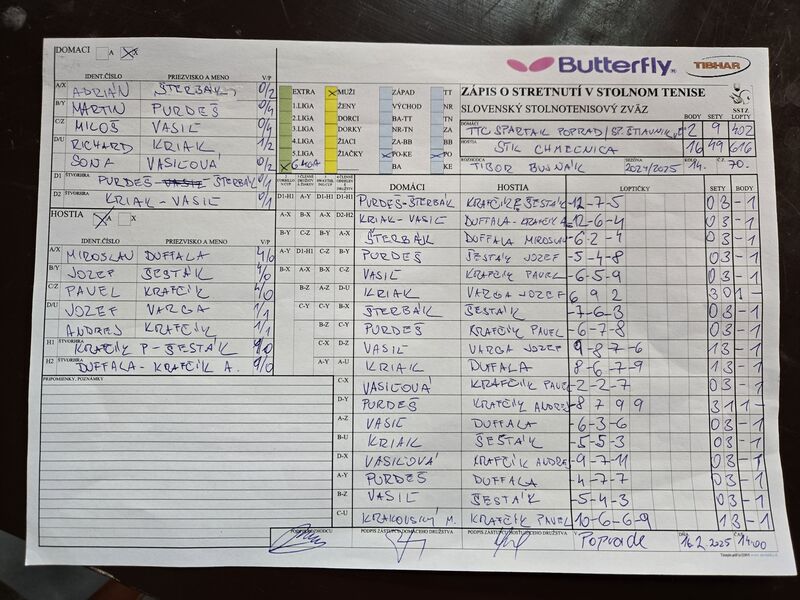 DOMACI A X
Butterfly TIBHAR
IDENT.ČÍSLO PRIEZVISKO A MENO V/P
A/X ADRIÁN ŠTERBÁK 0/2
B/Y MARTIN PURDEŠ
C/Z MILOŠ VASIĽ 0/4
D/U RICHARD KRIAK 1/2
SOŇA VASIĽOVÁ 0/2
D1 ŠTVORHRA PURDEŠ- ŠTERBÁK
D2 KRIAK - VASIĽ 0/1
EXTRA MUŽI ZÁPAD TT
1.LIGA ŽENY VÝCHOD NR
2.LIGA DORCI BA-TT TN
3.LIGA DORKY NR-TN ZA
4.LIGA ŽIACI ZA-BB BB
5.LIGA ŽIAČKY PO-KE PO
6 LIGA BA KE
ZÁPIS O STRETNUTÍ V STOLNOM TENISE
SLOVENSKÝ STOLNOTENISOVÝ ZVÄZ
SSTZ
BODY SETY LOPTY
DOMÁCI TTC SPARTAK POPRAD/ 2 9 402
HOSTIA STK CHMEĽNICA 16 49 616
ROZHODCA TIBOR BUJNÁIK SEZÓNA 2024/2025 KOLO 14. Č.Z. 70.
HOSTIA A X
IDENT.ČÍSLO PRIEZVISKO A MENO V/P
A/X MIROSLAV DUFFALA 4/0
B/Y JOZEF ŠESTÁK 4/0
C/Z PAVEL KRAFČÍK 4/0
D/U JOZEF VARGA 1/1
ANDREJ KRAFČÍK 1/1
H1 ŠTVORHRA KRAFČÍK P - ŠESTÁK
H2 ŠTVORHRA DUFFALA - KRAFČÍK A.
PRIPOMIENKY, POZNÁMKY
DOMÁCI HOSTIA LOPTIČKY SETY BODY
D1-H1 A-Y D1-H1 D1-H1 PURDEŠ-ŠTERBÁK -12-7-5 0 3 - 1
A-X B-X A-X D2-H2 KRIAK-VASIĽ DUFFALA - KRAFČÍK A -12-6-4 0 3 - 1
B-Y C-Z B-Y A-X ŠTERBÁK DUFFALA MIROSLAV -6-2-4 0 3 - 1
A-Y D1-H1 C-Z B-Y PURDEŠ ŠESTÁK JOZEF -5-4-8 0 3 - 1
B-X A-X D1-H1 C-Z VASIĽ KRAFČÍK PAVEL -6-5-9 0 3 - 1
B-Z A-Z D-U KRIAK VARGA JOZEF 6 9 2 3 0 1 -
C-Y B-X ŠTERBÁK ŠESTÁK -7-6-3 0 3 - 1
B-Z C-Y PURDEŠ KRAFČÍK PAVEL -6-7-8 0 3 - 1
C-X D-Z VASIĽ VARGA JOZEF 9-8-7-6 1 3 - 1
A-Y A-U KRIAK DUFFALA -8-6-7-9 1 3 - 1
C-X VASIĽOVÁ KRAFČÍK PAVEL -2-2-7 0 3 - 1
D-Y PURDEŠ KRAFČÍK ANDREJ -8 7 9 9 3 1 1 -
A-Z VASIĽ DUFFALA -6-3-6 0 3 - 1
B-U KRIAK ŠESTÁK -5-5-3 0 3 - 1
D-X VASIĽOVÁ KRAFČÍK ANDREJ -9-7-11 0 3 - 1
A-Y PURDEŠ DUFFALA -4-7-7 0 3 - 1
B-Z VASIĽ ŠESTÁK -5-4-3 0 3 - 1
C-U KRAKOVSKÝ M. KRAFČÍK PAVEL 10-6-6-9 1 3 - 1
PODPIS ROZHODCU PODPIS ZÁSTUPCU DOMÁCEHO DRUŽSTVA PODPIS ZÁSTUPCU HOSŤUJÚCEHO DRUŽSTVA V Poprade DŇA 16.2.2025 ČAS 14:00